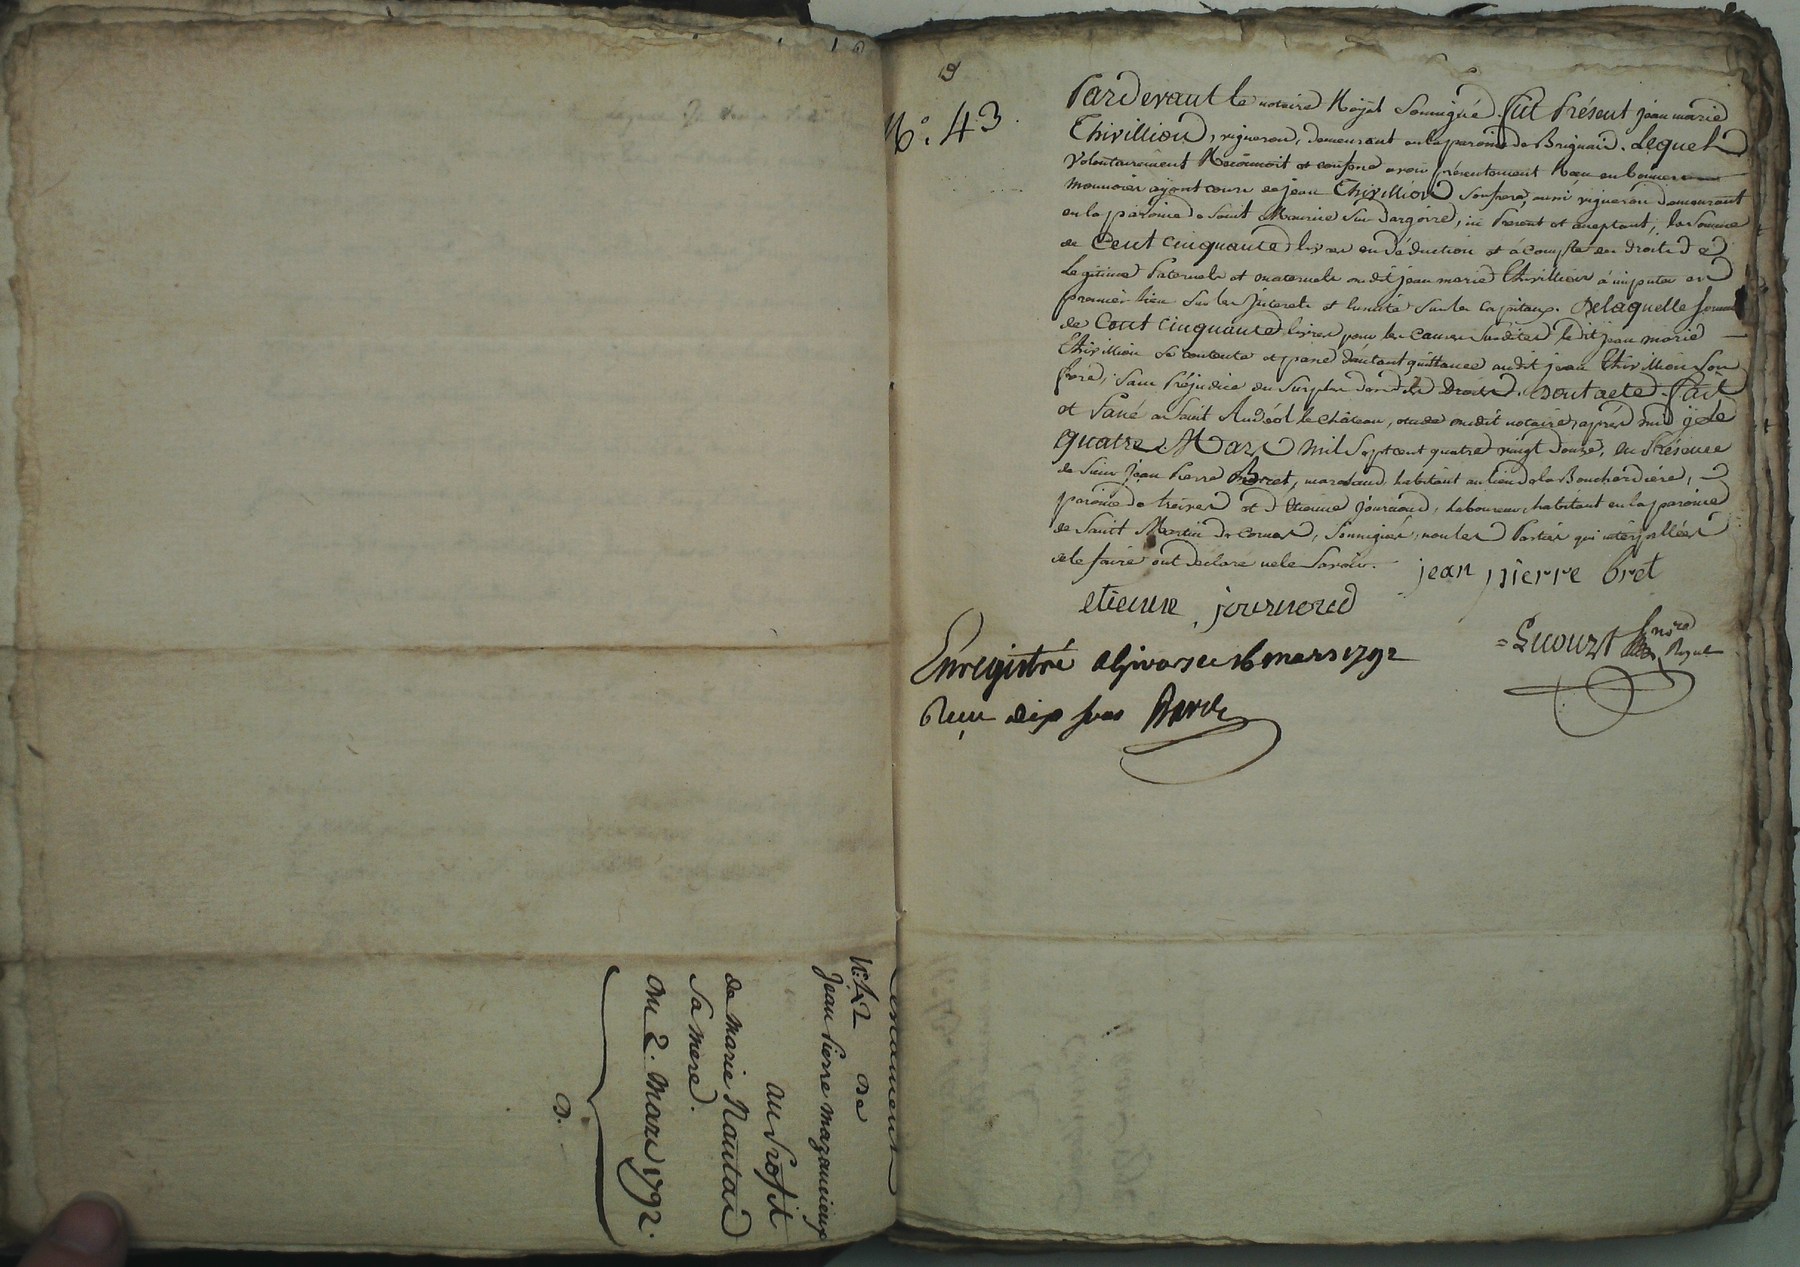 Testament
N.° 42 de
Jean Pierre mazancieux
au Profit
de marie Nantas
Sa mere.
du 2. Mars 1792.
D.
N.° 43.
Pardevant le notaire Royal Soussigné. Fut Présent jean marie
Thivillion, vigneron, demeurant en la paroisse de Brignais. Lequel
volontairement Reconnoit et confesse avoir présentement Reçu en bonnes
monnoies ayant cours de jean Thivillion son frere, aussi vigneron demeurant
en la paroisse de Saint Maurice Sur dargoire, ici Présent et aceptant, la Somme
de Cent cinquante livres en déduction et à compte des droits de
Legitime Paternels et maternels dudit jean marie Thivillion à imputer en
premier lieu Sur les Interets et ensuite Sur les Capitaux. De laquelle Somme
de Cent cinquante livres pour les causes Susdites ledit jean marie
Thivillion se contente et passe d'autant quittance audit jean Thivillion Son
frere, Sans Préjudice du Surplus desdits Droits. dont acte. Fait
et Passé à Saint Andéol le château, étude dudit notaire, après midi, le
quatre Mars mil Sept cent quatre vingt douze, en Présence
de Sieur Jean Pierre Bret, marchand, habitant au lieu de la Bouchardière,
paroisse de treves et d'Etienne Journoud, laboureur, habitant en la paroisse
de Saint Martin de Cornas, Soussignés, non les Parties qui interpellées
de le faire ont déclaré ne le Savoir.
jean pierre bret
etienne journoud
Enregistré a givors ce 16 mars 1792
Recu dix sous
nore Royal